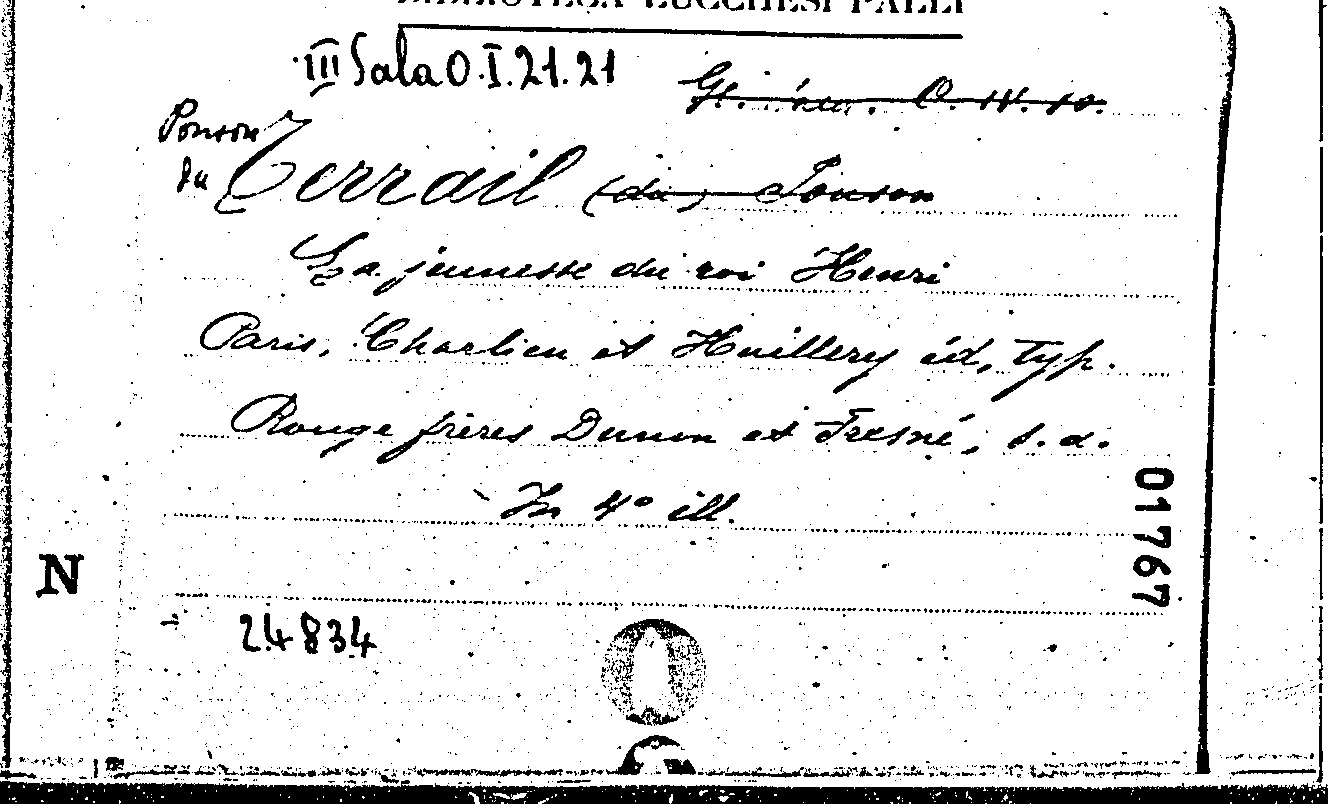 BIBLIOTECA LUCCHESI PALLI
III Sala O.I.21.21
O. IV. 10.
Ponson
du Terrail (du) Ponson
La jeunesse du roi Henri
Paris, Charlieu et Huillery éd, typ.
Rouge frères Dunon et Fresné, s. d.
In 4° ill.
01767
N
24834